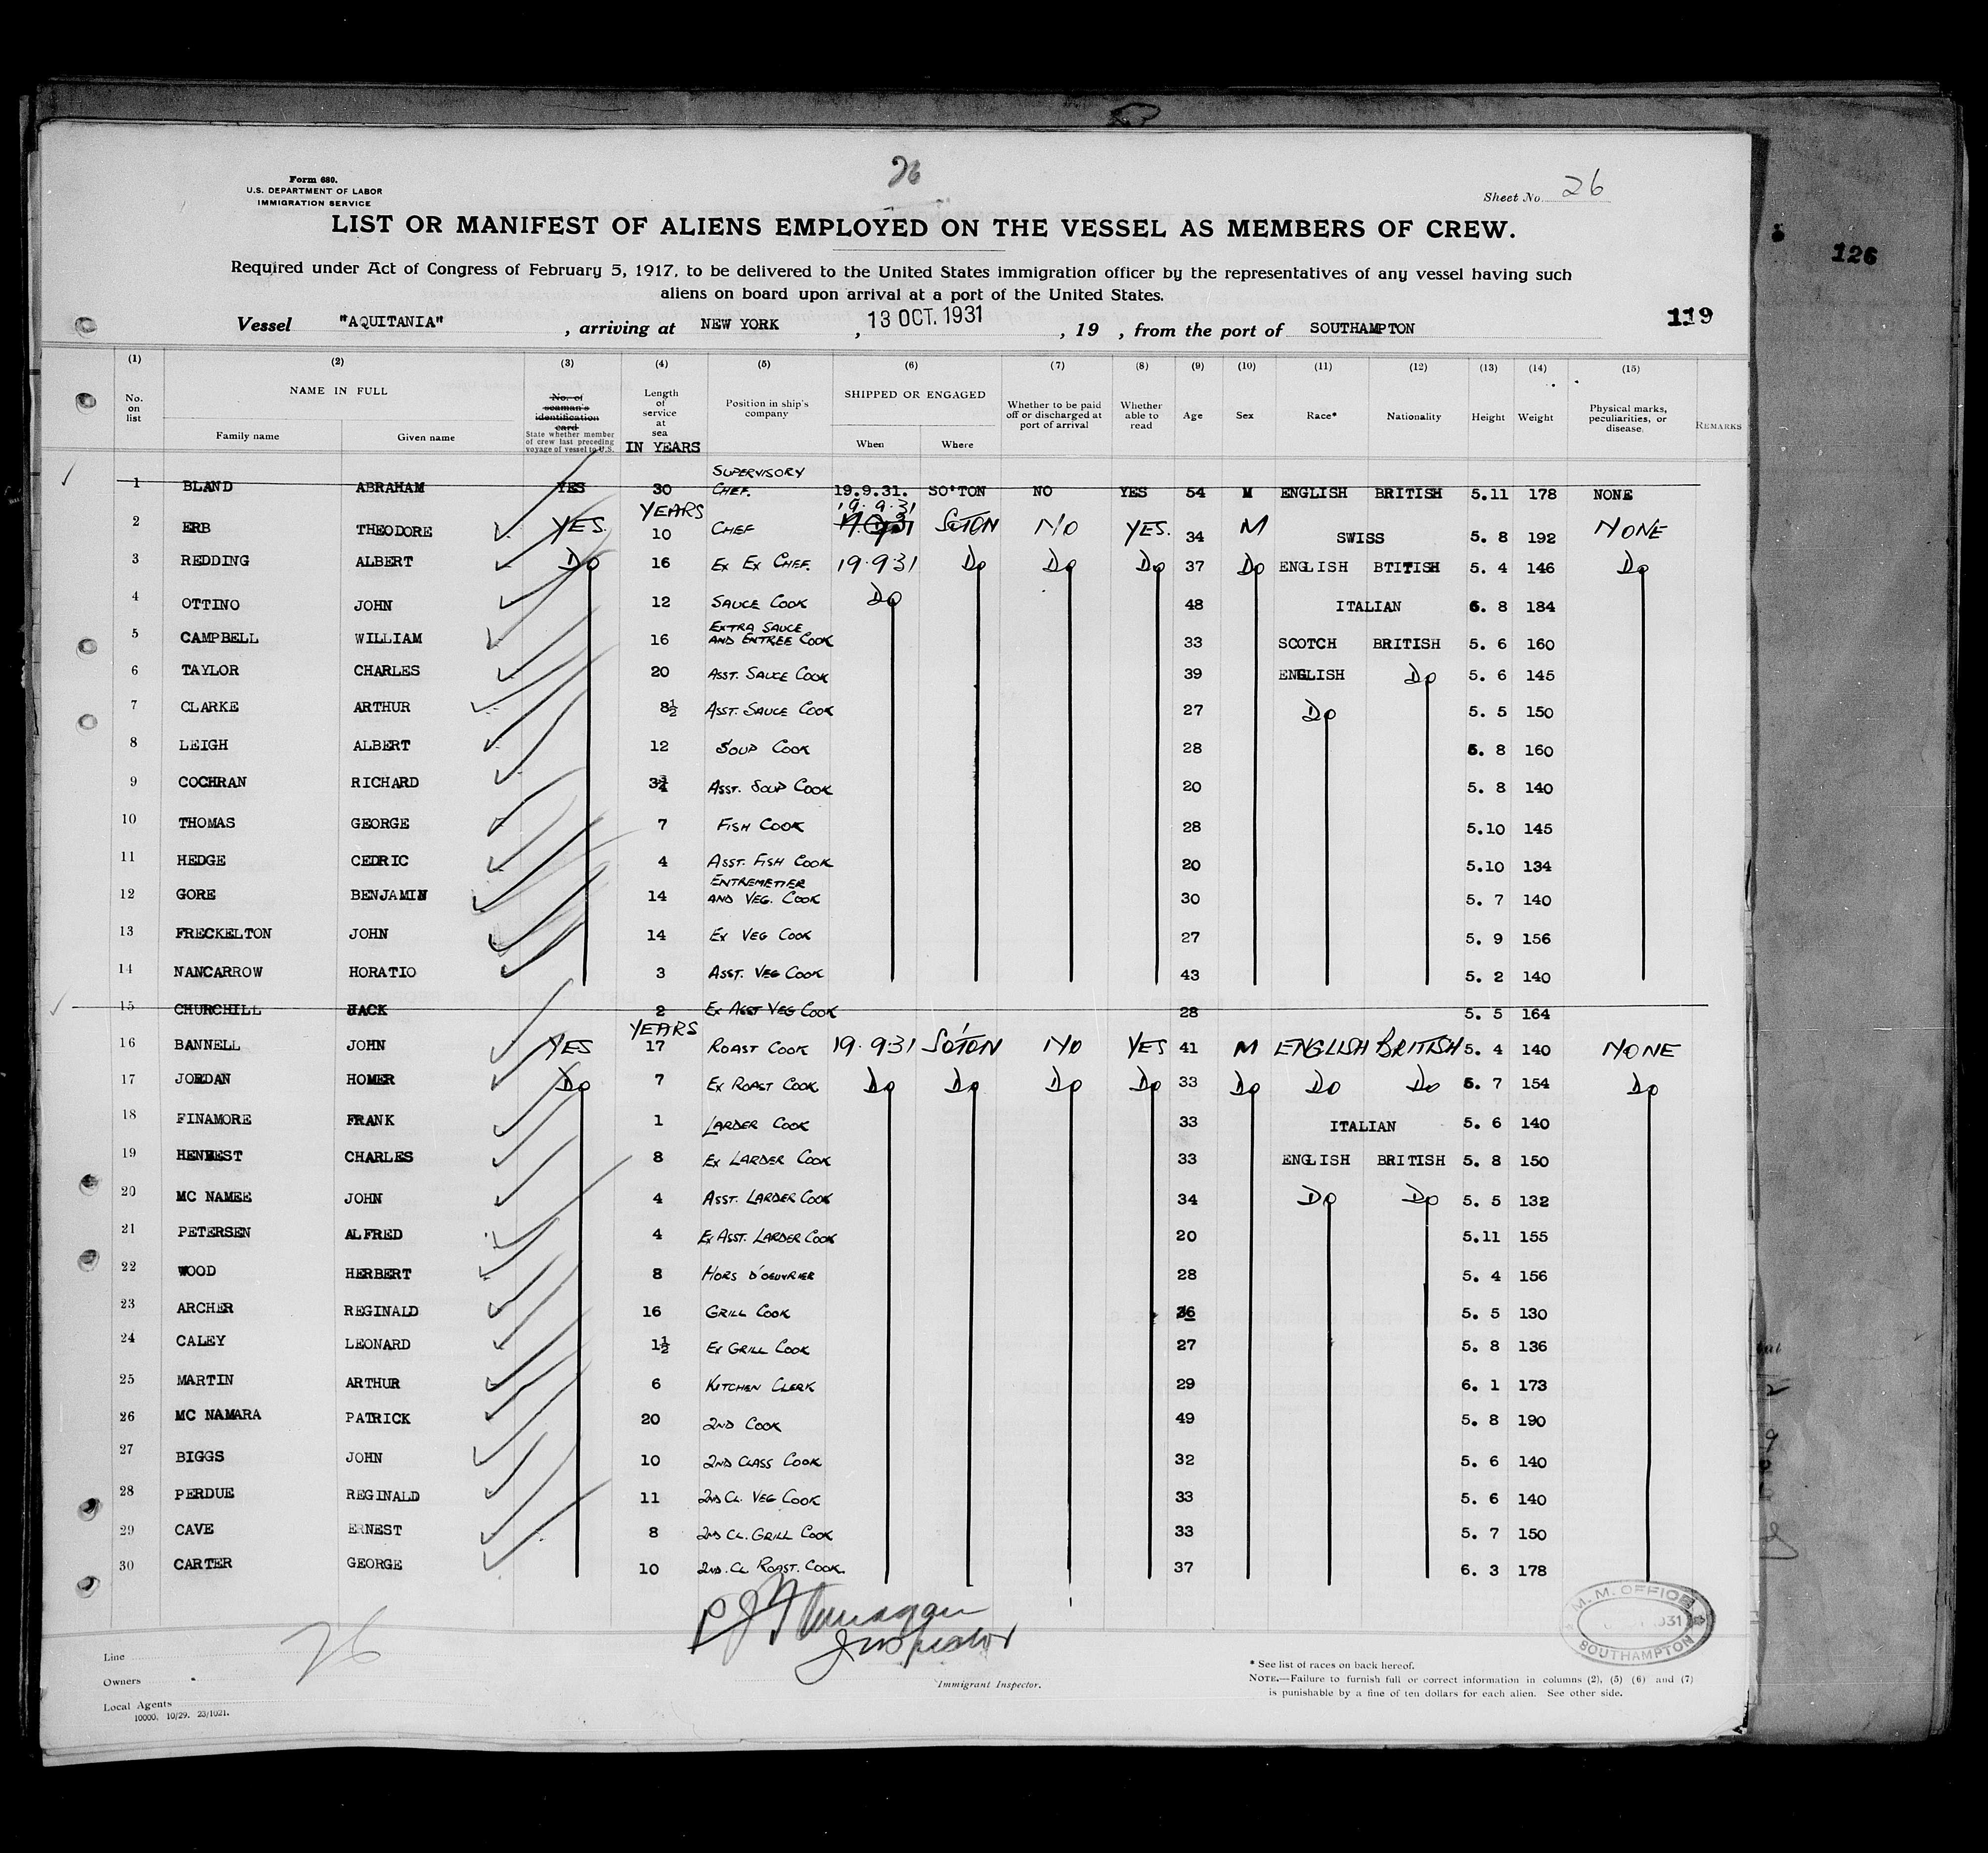 26
Form 680.
U.S. DEPARTMENT OF LABOR
IMMIGRATION SERVICE
Sheet No. 26
LIST OR MANIFEST OF ALIENS EMPLOYED ON THE VESSEL AS MEMBERS OF CREW.
126
Required under Act of Congress of February 5, 1917, to be delivered to the United States immigration officer by the representatives of any vessel having such
aliens on board upon arrival at a port of the United States.
Vessel "AQUITANIA", arriving at NEW YORK, 13 OCT. 1931, 19 , from the port of SOUTHAMPTON
119
(1) (2) (3) (4) (5) (6) (7) (8) (9) (10) (11) (12) (13) (14) (15)
No. on list
NAME IN FULL
Family name Given name
No. of seaman's identification card
State whether member of crew last preceding voyage of vessel to U.S.
Length of service at sea IN YEARS
Position in ship's company
SHIPPED OR ENGAGED
When Where
Whether to be paid off or discharged at port of arrival
Whether able to read
Age
Sex
Race*
Nationality
Height
Weight
Physical marks, peculiarities, or disease.
REMARKS
1 BLAND ABRAHAM YES 30 SUPERVISORY CHEF. 19.9.31. SO'TON NO YES 54 M ENGLISH BRITISH 5.11 178 NONE
2 ERB THEODORE YES. YEARS 10 CHEF 19.9.31 SO'TON NO YES. 34 M SWISS 5. 8 192 NONE
3 REDDING ALBERT DO 16 EX EX CHEF. 19.9.31 DO DO DO 37 DO ENGLISH BTITISH 5. 4 146 DO
4 OTTINO JOHN 12 SAUCE COOK DO 48 ITALIAN 5. 8 184
5 CAMPBELL WILLIAM 16 EXTRA SAUCE AND ENTREE COOK 33 SCOTCH BRITISH 5. 6 160
6 TAYLOR CHARLES 20 ASST. SAUCE COOK 39 ENGLISH DO 5. 6 145
7 CLARKE ARTHUR 8½ ASST. SAUCE COOK 27 DO 5. 5 150
8 LEIGH ALBERT 12 SOUP COOK 28 5. 8 160
9 COCHRAN RICHARD 3¾ ASST. SOUP COOK 20 5. 8 140
10 THOMAS GEORGE 7 FISH COOK 28 5.10 145
11 HEDGE CEDRIC 4 ASST. FISH COOK 20 5.10 134
12 GORE BENJAMIN 14 ENTREMETIER AND VEG. COOK 30 5. 7 140
13 FRECKELTON JOHN 14 EX VEG COOK 27 5. 9 156
14 NANCARROW HORATIO 3 ASST. VEG COOK 43 5. 2 140
15 CHURCHILL JACK 2 EX ASST VEG COOK 28 5. 5 164
16 BANNELL JOHN YES YEARS 17 ROAST COOK 19.9.31 SO'TON NO YES 41 M ENGLISH BRITISH 5. 4 140 NONE
17 JORDAN HOMER DO 7 EX ROAST COOK DO DO DO DO 33 DO DO DO 5. 7 154 DO
18 FINAMORE FRANK 1 LARDER COOK 33 ITALIAN 5. 6 140
19 CHARLES 8 EX LARDER COOK 33 ENGLISH BRITISH 5. 8 150
20 MC NAMEE JOHN 4 ASST. LARDER COOK 34 DO DO 5. 5 132
21 PETERSEN ALFRED 4 EX ASST. LARDER COOK 20 5.11 155
22 WOOD HERBERT 8 HORS D'OEUVRIER 28 5. 4 156
23 ARCHER REGINALD 16 GRILL COOK 5. 5 130
24 CALEY LEONARD 1½ EX GRILL COOK 27 5. 8 136
25 MARTIN ARTHUR 6 KITCHEN CLERK 29 6. 1 173
26 MC NAMARA PATRICK 20 2ND COOK 49 5. 8 190
27 BIGGS JOHN 10 2ND CLASS COOK 32 5. 6 140
28 PERDUE REGINALD 11 2ND CL. VEG COOK 33 5. 6 140
29 CAVE ERNEST 8 2ND CL. GRILL COOK 33 5. 7 150
30 CARTER GEORGE 10 2ND. CL ROAST. COOK. 37 6. 3 178
P J Flannagan
Inspector
Immigrant Inspector.
26
Line
Owners
Local Agents
10000, 10/29. 23/1021.
M. M. OFFICE
SOUTHAMPTON
* See list of races on back hereof.
NOTE.—Failure to furnish full or correct information in columns (2), (5) (6) and (7)
is punishable by a fine of ten dollars for each alien. See other side.